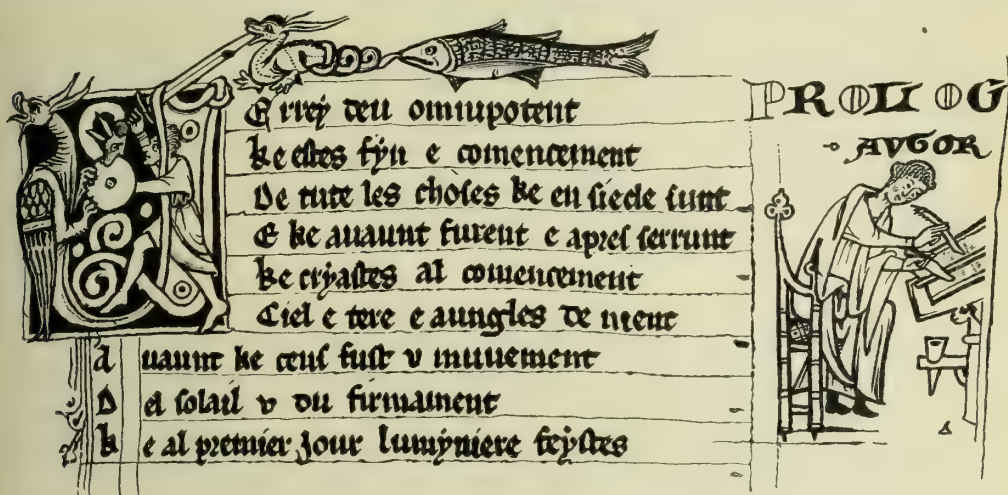 E rrey deu omnipotent
ke estes fyn e comencement
De tute les choses ke en siecle sunt
E ke avaunt furent e apres serrunt
ke cryastes al comencement
Ciel e tere e aungles de nient
A uaunt ke ceus fust v muuement
D el solail v du firmament
k e al premier Jour lumyniere feystes
PROLOG
AVGOR